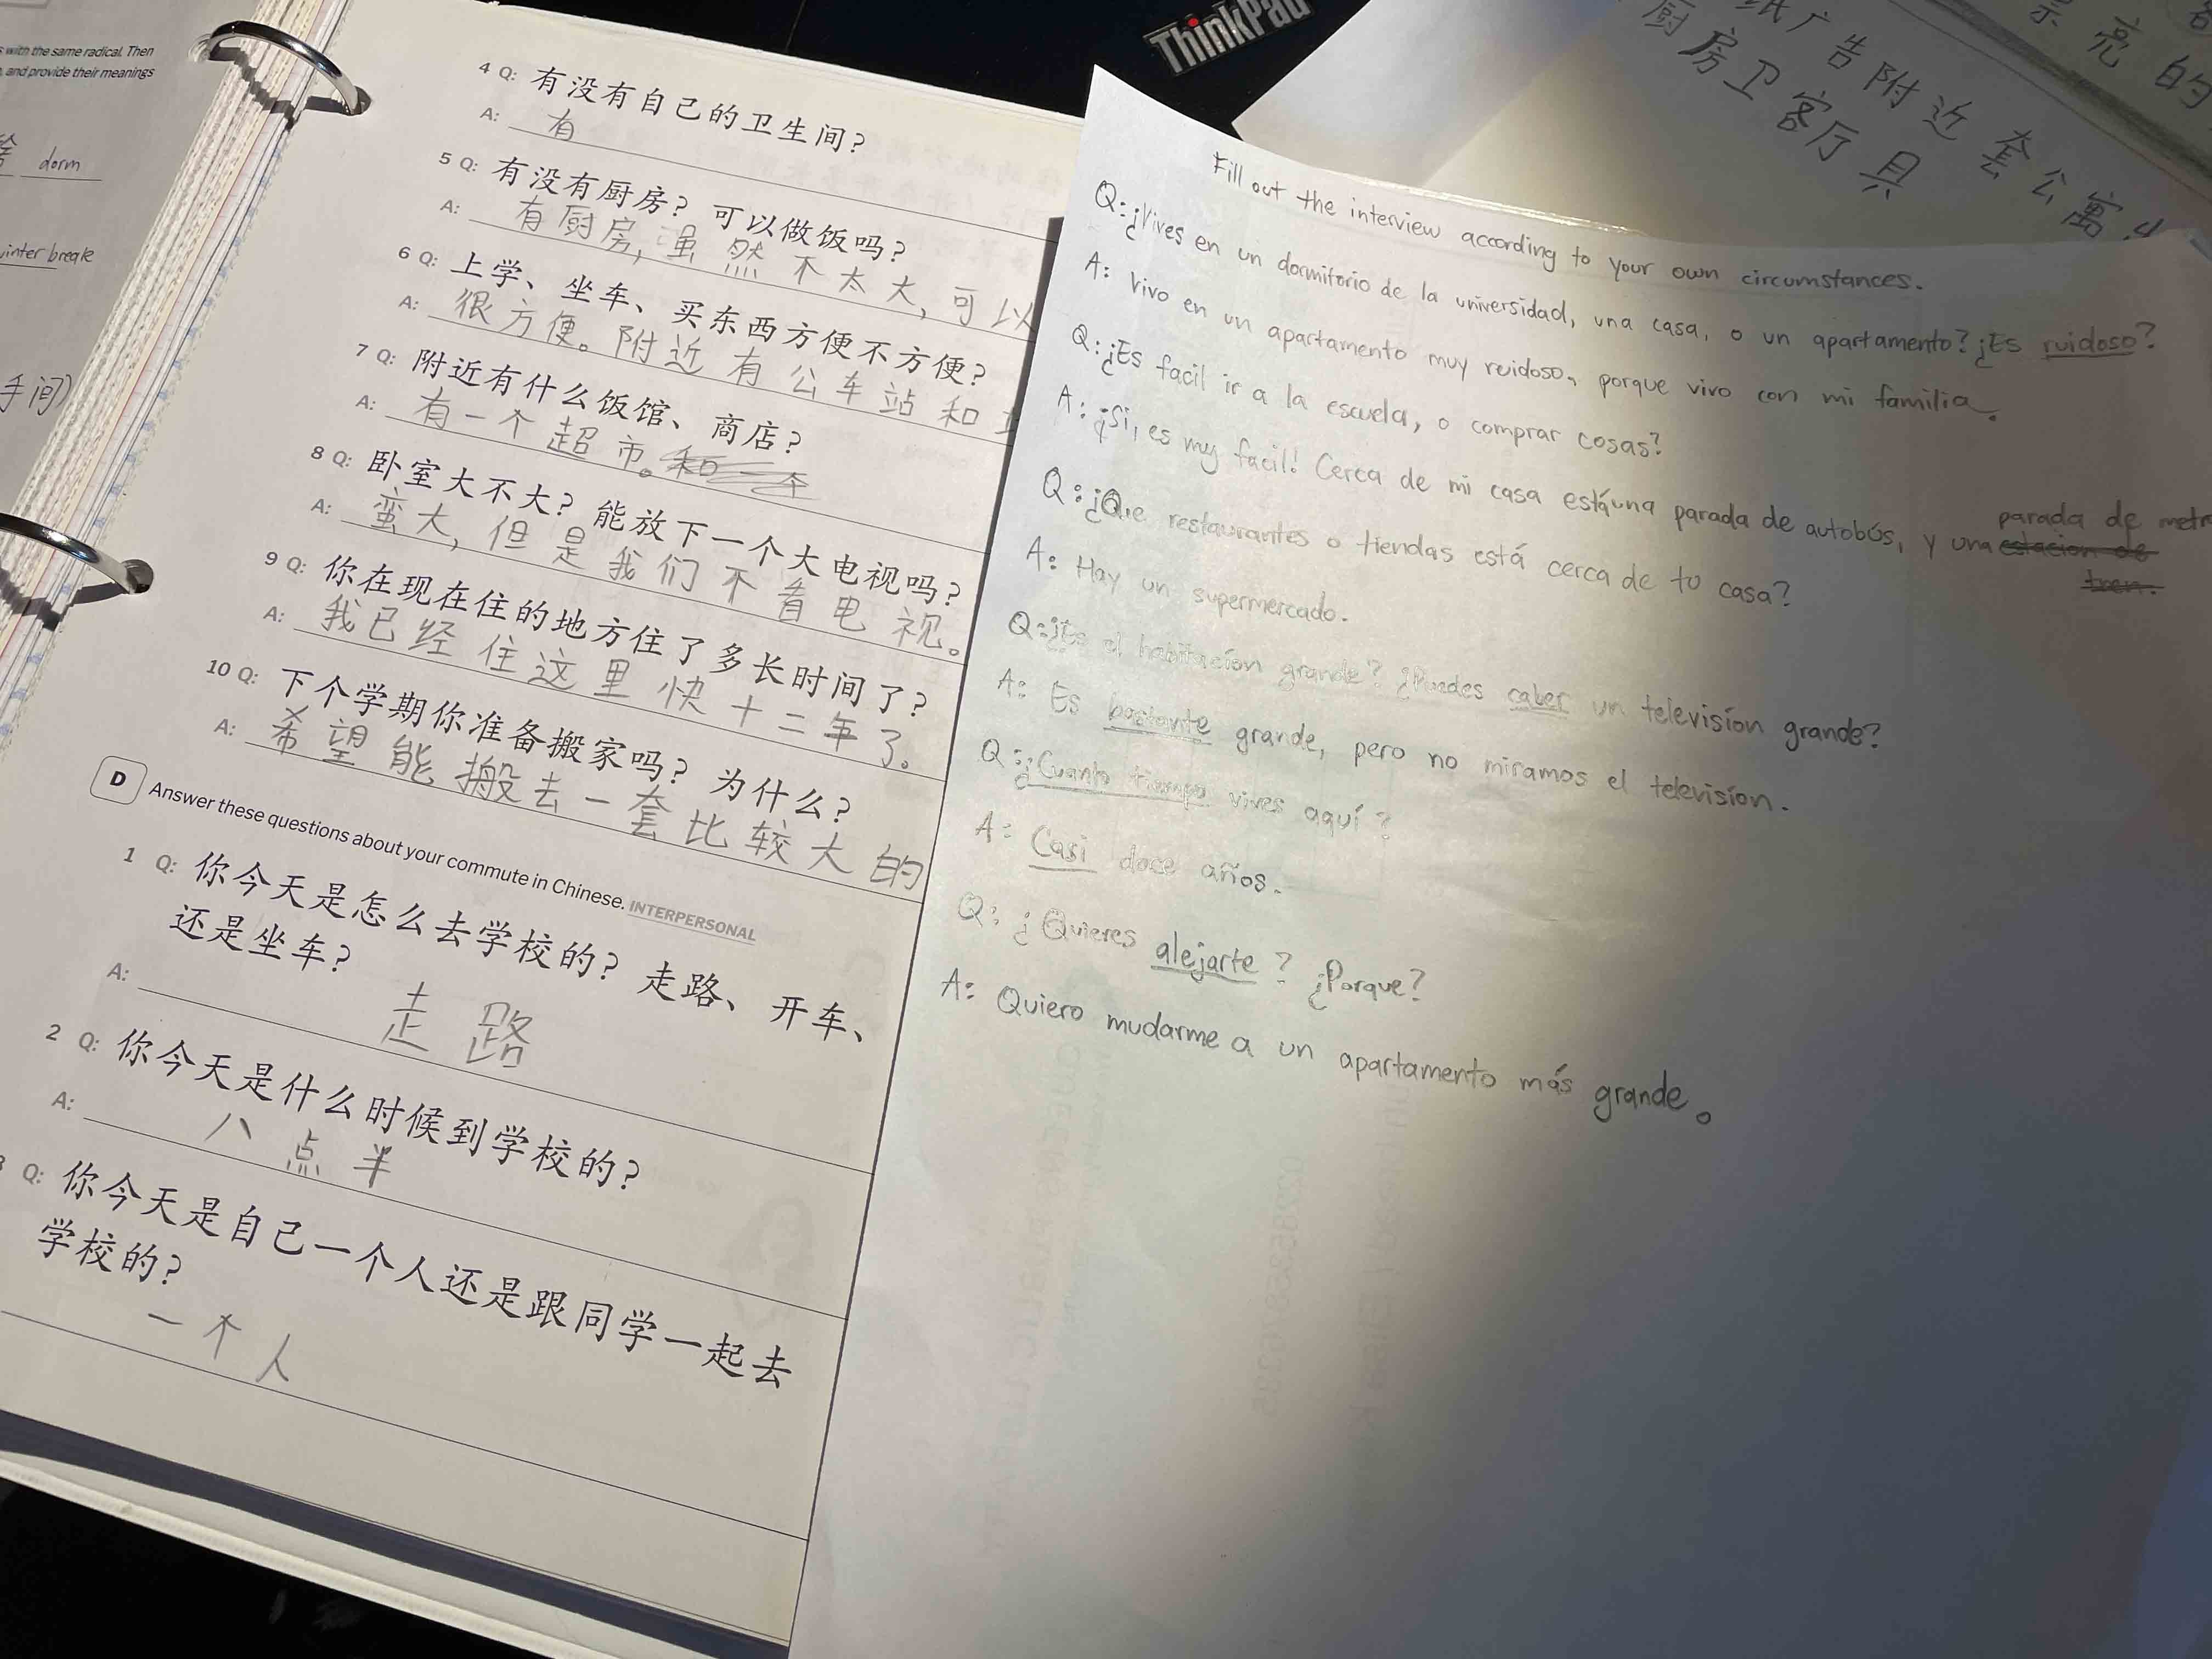 with the same radical. Then
and provide their meanings
dorm
inter break
手间)
4 Q: 有没有自己的卫生间?
A: 有
5 Q: 有没有厨房? 可以做饭吗?
A: 有厨房, 虽然不太大, 可以
6 Q: 上学、坐车、买东西方便不方便?
A: 很方便。附近有公车站和
7 Q: 附近有什么饭馆、商店?
A: 有一个超市。
8 Q: 卧室大不大? 能放下一个大电视吗?
A: 蛮大, 但是我们不看电视。
9 Q: 你在现在住的地方住了多长时间了?
A: 我已经住这里快十二年了。
10 Q: 下个学期你准备搬家吗? 为什么?
A: 希望能搬去一套比较大的
D Answer these questions about your commute in Chinese. INTERPERSONAL
1 Q: 你今天是怎么去学校的? 走路、开车、
还是坐车?
A: 走路
2 Q: 你今天是什么时候到学校的?
A: 八点半
Q: 你今天是自己一个人还是跟同学一起去
学校的?
一个人
ThinkPad
Fill out the interview according to your own circumstances.
Q: ¿Vives en un dormitorio de la universidad, una casa, o un apartamento? ¿Es ruidoso?
A: Vivo en un apartamento muy ruidoso, porque vivo con mi familia.
Q: ¿Es facil ir a la escuela, o comprar cosas?
A: ¡Si, es muy facil! Cerca de mi casa está una parada de autobús, y una estacion de tren. parada de metr
Q: ¿Que restaurantes o tiendas está cerca de tu casa?
A: Hay un supermercado.
Q: ¿Es el habitacíon grande? ¿Puedes caber un televisíon grande?
A: Es bastante grande, pero no miramos el televisíon.
Q: ¿Cuanto tiempo vives aquí?
A: Casi doce años.
Q: ¿Quieres alejarte? ¿Porque?
A: Quiero mudarme a un apartamento más grande.
纸广告附近套公寓
厨房卫客厅具
亮的